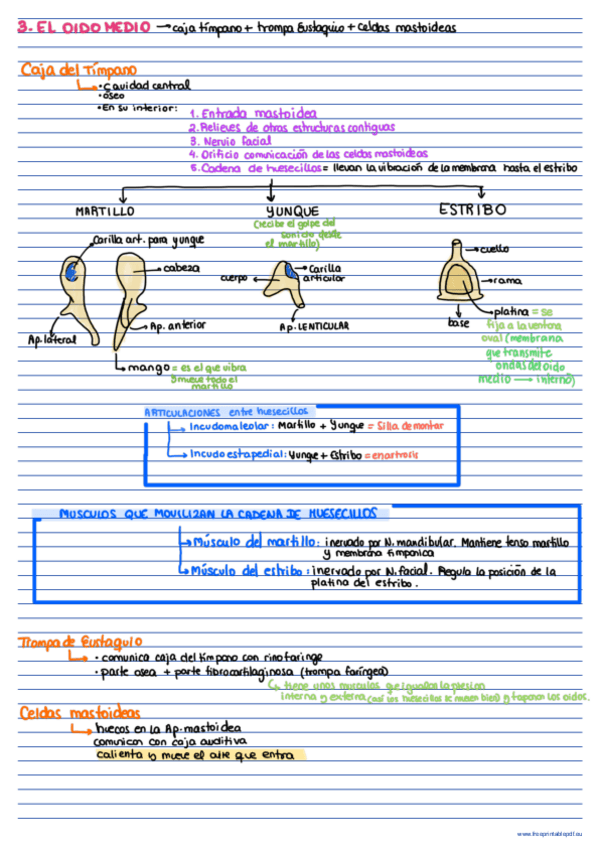 3. EL OIDO MEDIO → caja tímpano + trompa Eustaquio + celdas mastoideas
Caja del Tímpano
• cavidad central
• óseo
• En su interior:
1. Entrada mastoidea
2. Relieves de otras estructuras contiguas
3. Nervio facial
4. Orificio comunicación de las celdas mastoideas
5. Cadena de huesecillos = llevan la vibración de la membrana hasta el estribo
MARTILLO
YUNQUE
ESTRIBO
(recibe el golpe del
sonido desde
el martillo)
Carilla art. para yunque
cabeza
Ap. lateral
Ap. anterior
mango = es el que vibra
y mueve todo el
martillo
cuerpo
Carilla
articular
Ap. LENTICULAR
cuello
rama
base
platina = se
fija a la ventana
oval (membrana
que transmite
ondas del oido
medio → interno)
ARTICULACIONES entre huesecillos
Incudomaleolar: Martillo + Yunque = Silla de montar
Incudoestapedial: Yunge + Estribo = enartrosis
MUSCULOS QUE MOVILIZAN LA CADENA DE HUESECILLOS
Músculo del martillo: inervado por N. mandibular. Mantiene tenso martillo
y membrana timpanica
Músculo del estribo: inervado por N. facial. Regula la posición de la
platina del estribo.
Trompa de Eustaquio
• comunica caja del tímpano con rinofaringe
• parte osea + parte fibrocartilaginosa (trompa faríngea)
tiene unos musculos que igualan la presion
interna y externa (así los huesecillos se mueven bien) y taponan los oidos.
Celdas mastoideas
huecos en la Ap. mastoidea
comunican con caja auditiva
calienta y mueve el aire que entra
www.freeprintablepdf.eu